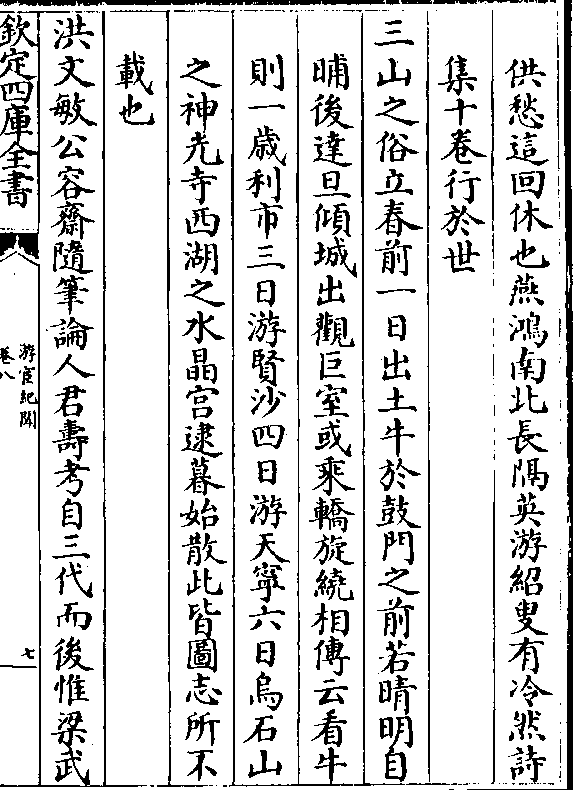 供愁這回休也燕鴻南北長隅英游紹叟有冷然詩
集十卷行於世
三山之俗立春前一日出土牛於鼓門之前若晴明自
晡後達旦傾城出觀巨室或乘轎旋繞相傳云看牛
則一歲利市三日游賢沙四日游天寧六日烏石山
之神光寺西湖之水晶宫逮暮始散此皆圖志所不
載也
洪文敏公容齋隨筆論人君壽考自三代而後惟梁武
欽定四庫全書
游宦紀聞
卷八
七